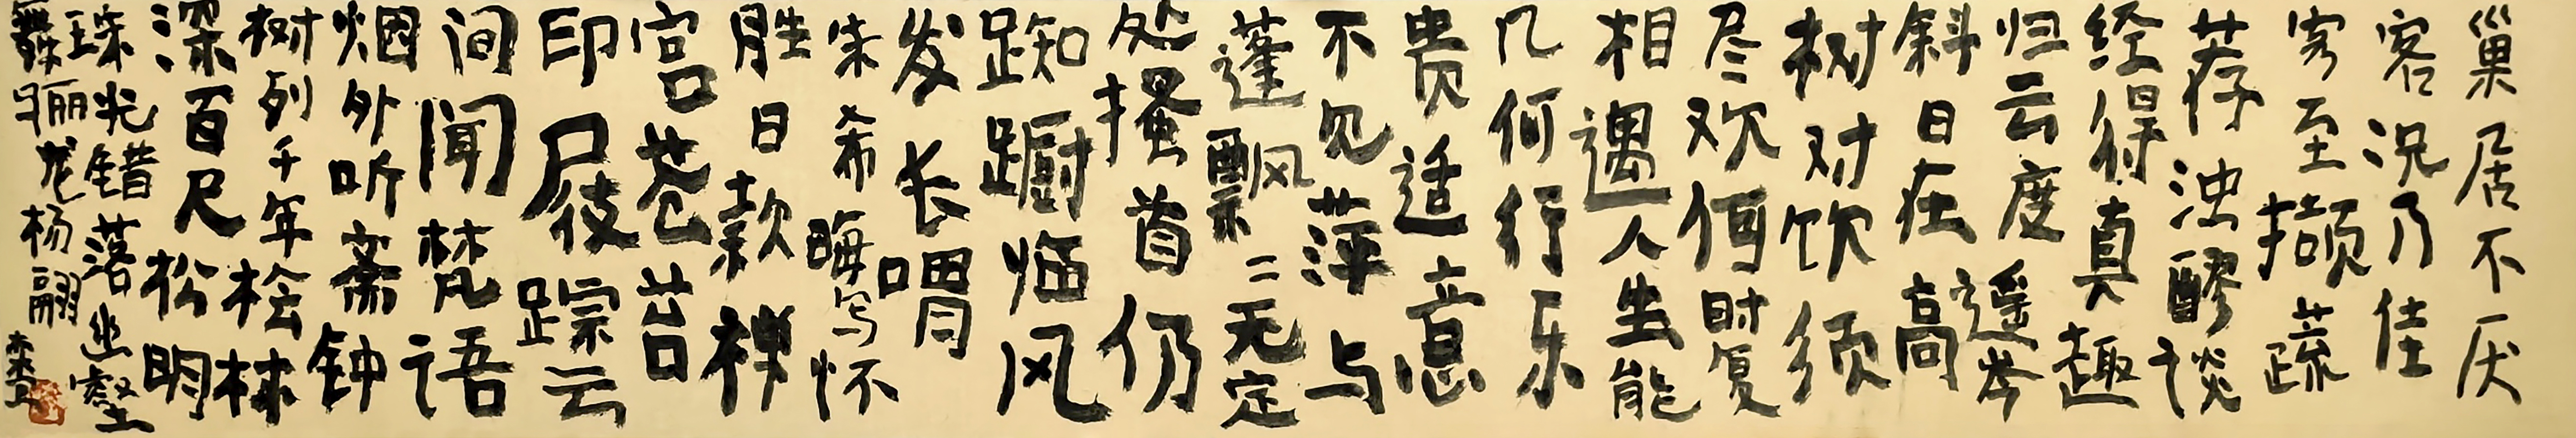 巢居不厌
客况乃佳
客至撷蔬
荐浊醪谈
经得真趣
归云度遥岑
斜日在高
树对饮须
尽欢何时复
相遇人生能
几何行乐
贵适意
不见萍与
蓬飘〻无定
处搔首仍
踟蹰临风
发长喟
朱希晦写怀
胜日款禅
宫苍苔
印屐踪云
间闻梵语
烟外听斋钟
树列千年桧林
深百尺松明
珠光错落幽壑
舞骊龙杨翮